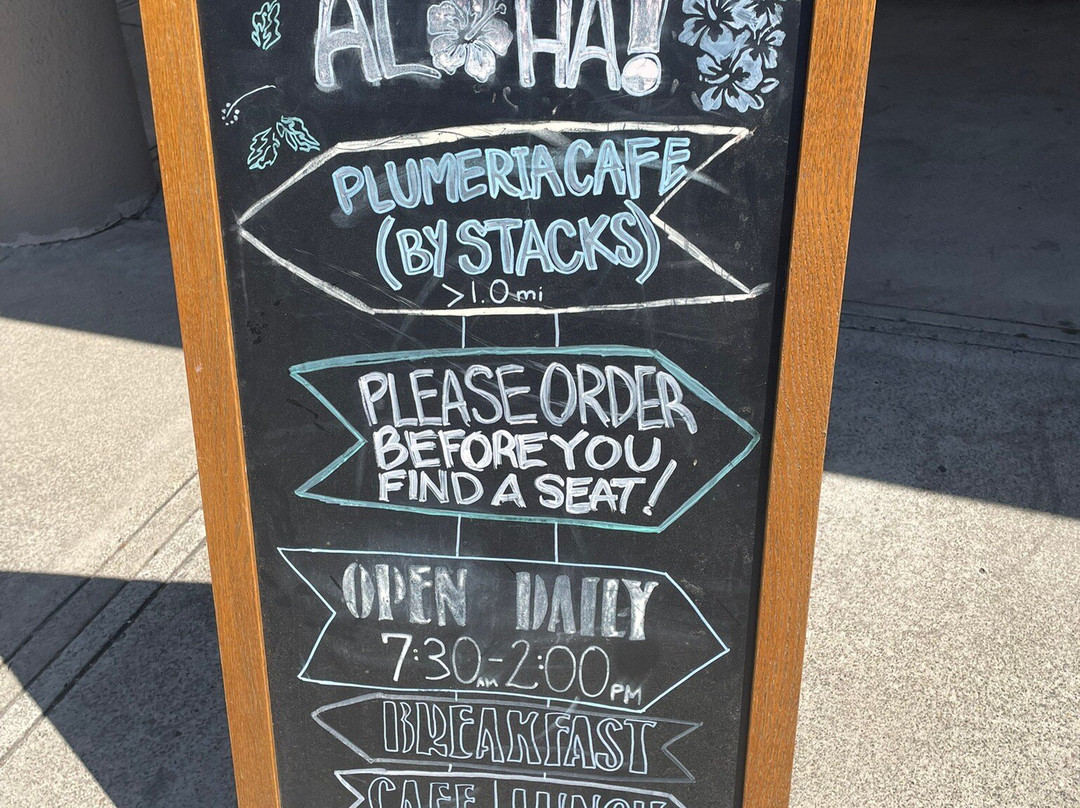 ALOHA!
PLUMERIA CAFE
(BY STACKS)
>1.0 mi
PLEASE ORDER
BEFORE YOU
FIND A SEAT!
OPEN DAILY
7:30 AM - 2:00 PM
BREAKFAST
CAFE LUNCH